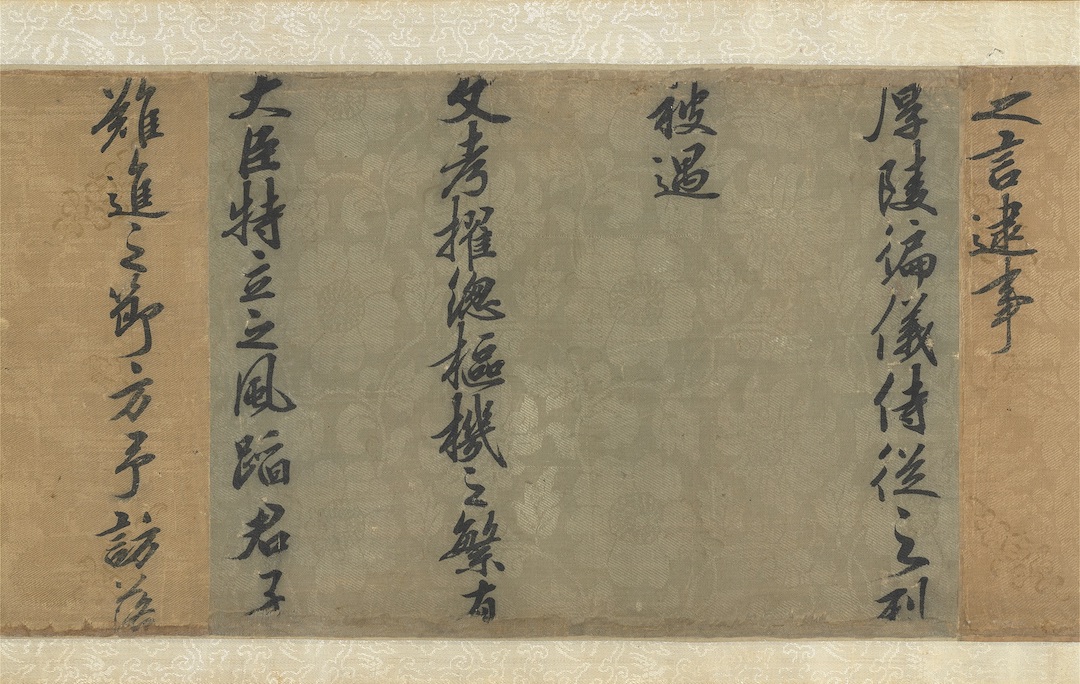 之言逮事
厚陵徧儀侍從之列
被遇
文考擢緫樞機之繁有
大臣特立之風蹈君子
難進之節方予訪落